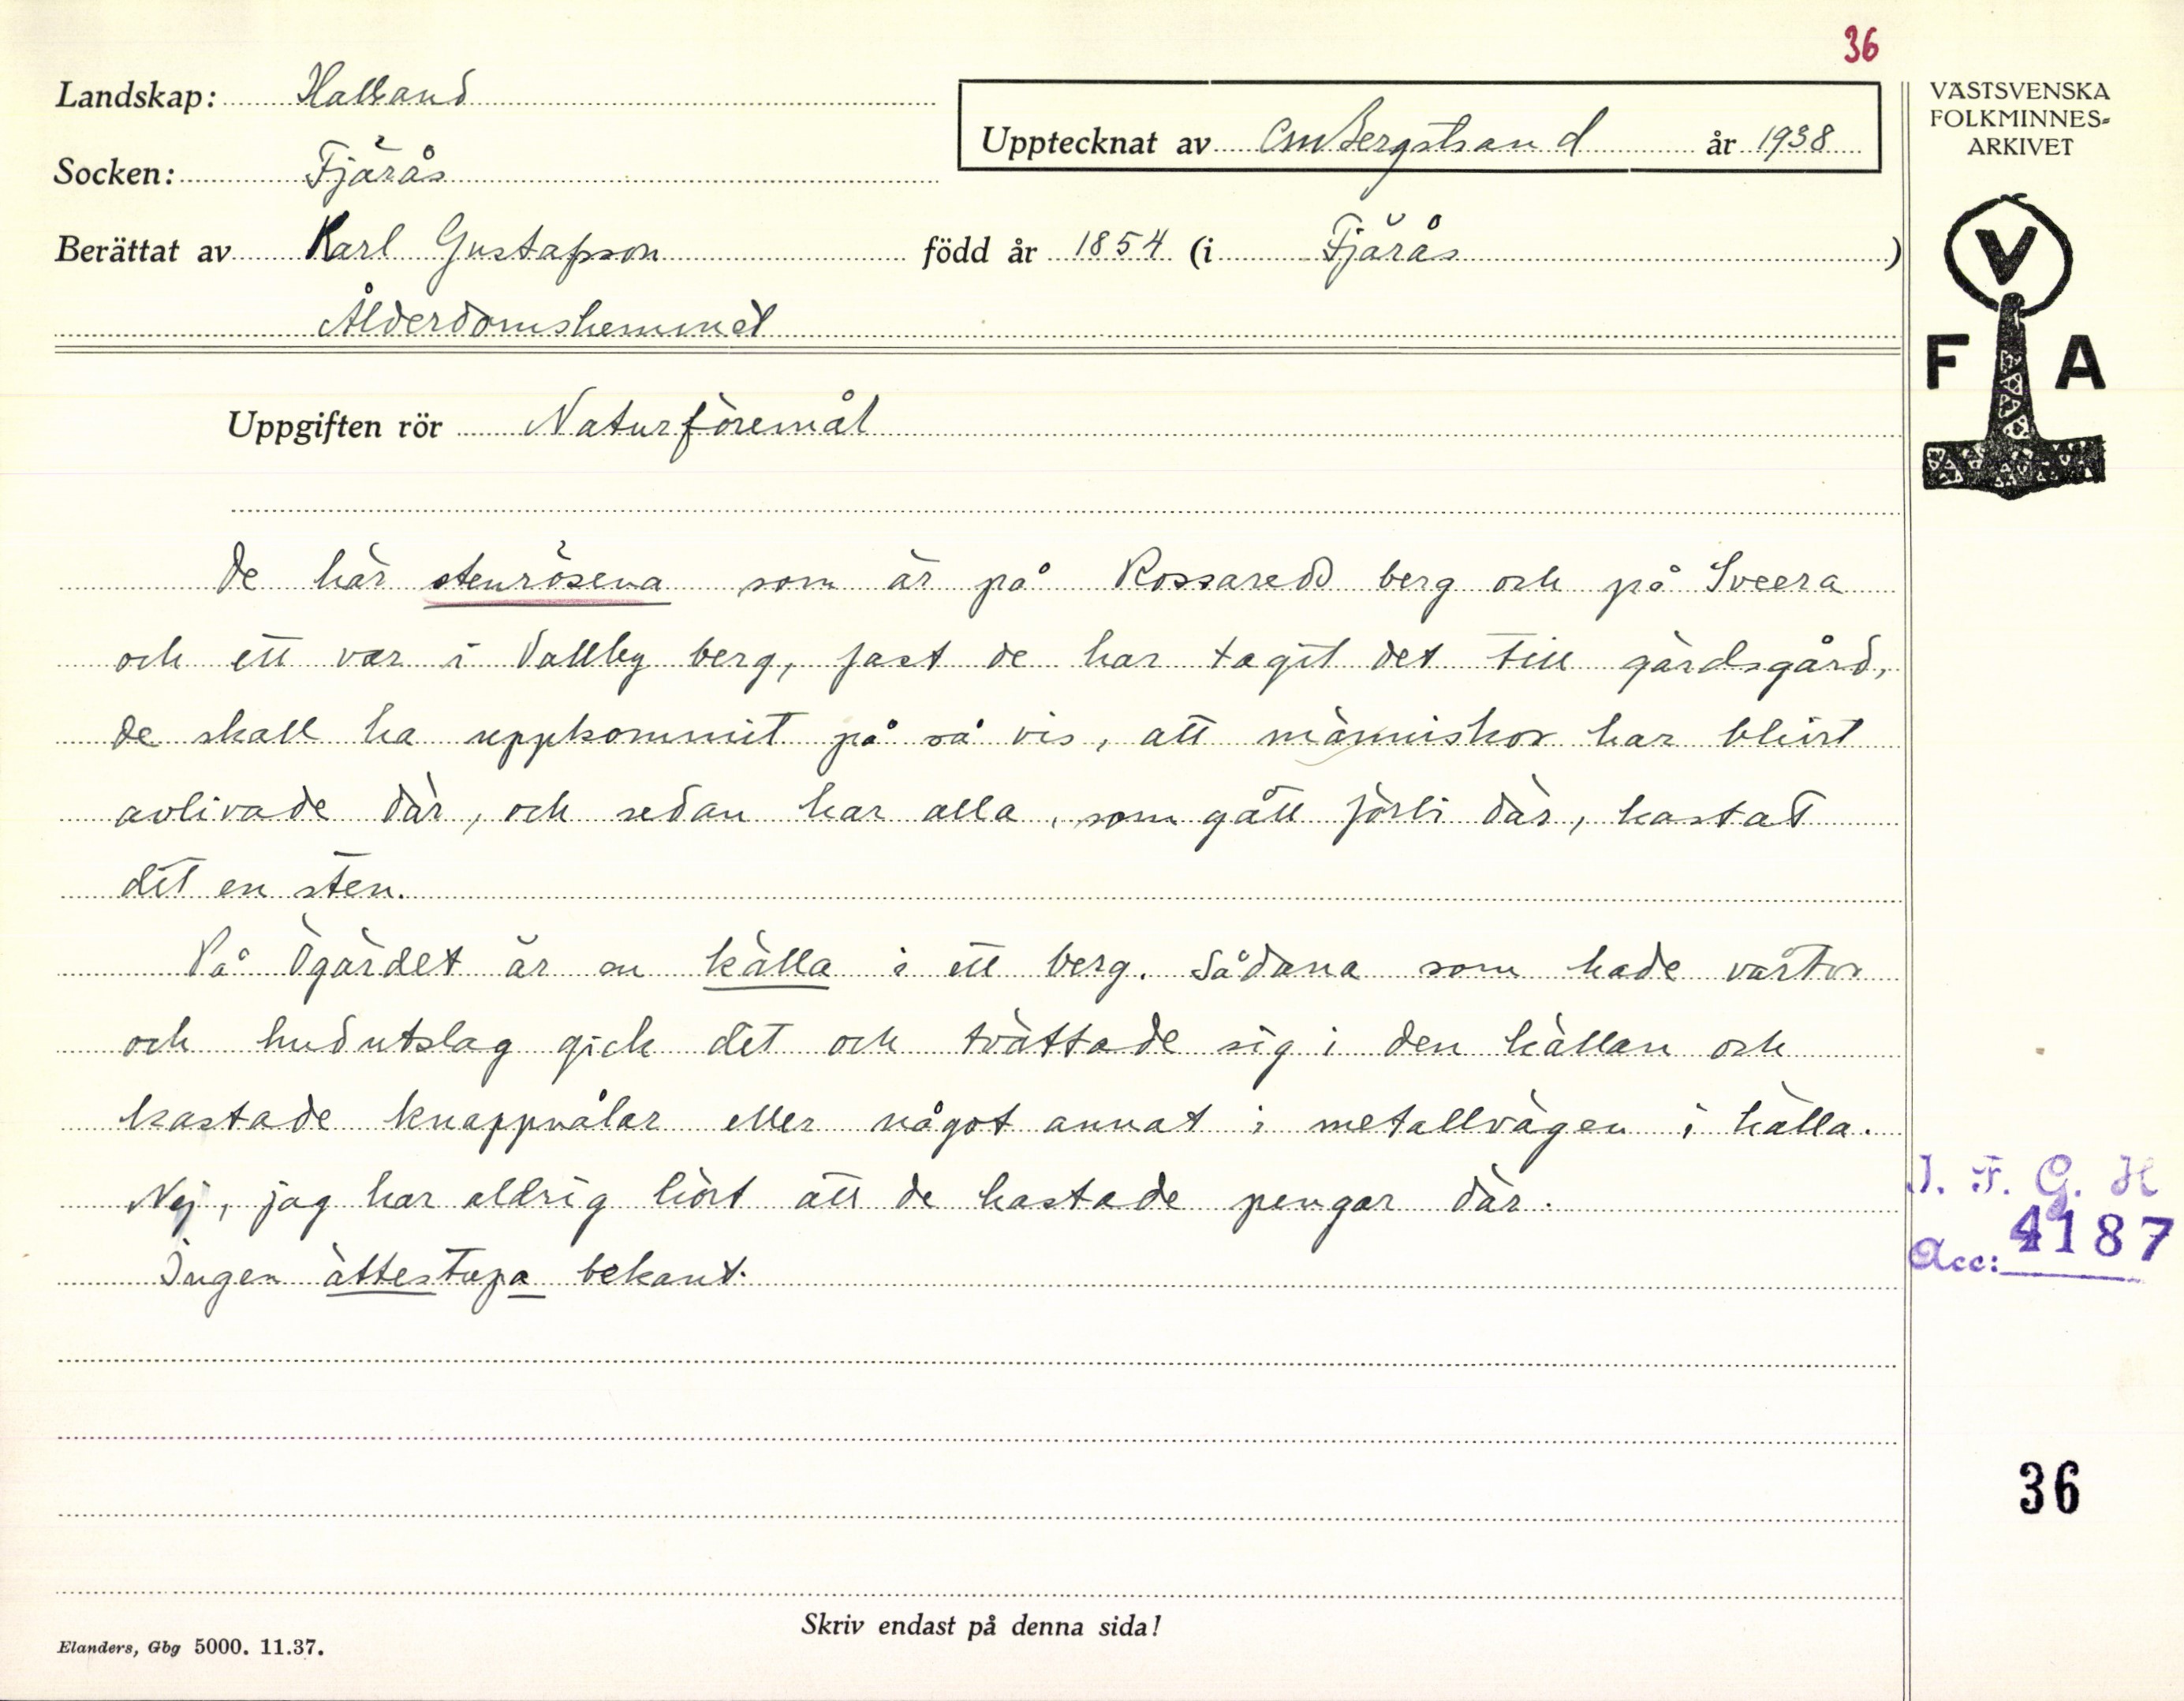 36
Landskap: Halland
Upptecknat av CMBergstrand år 1938
VÄSTSVENSKA
FOLKMINNES-
ARKIVET
Socken: Fjärås
Berättat av Karl Gustafsson född år 1854 (i Fjärås)
Ålderdomshemmet
V
F A
Uppgiften rör Naturföremål
De här stenrösena som är på Rossared berg och på Sveera
och ett var i Vallby berg, fast de har tagit det till gärdsgård,
de skall ha uppkommit på så vis, att människor har blivit
avlivade där, och sedan har alla, som gått förbi där, kastat
dit en sten.
På Ögärdet är en källa i ett berg. Sådana som hade vårtor
och hudutslag gick dit och tvättade sig i den källan och
kastade knappnålar eller något annat i metallvägen i källa.
Nej, jag har aldrig hört att de kastade pengar där.
Ingen ättestupa bekant.
I. F. G. H
Acc: 4187
36
Skriv endast på denna sida!
Elanders, Gbg 5000. 11.37.